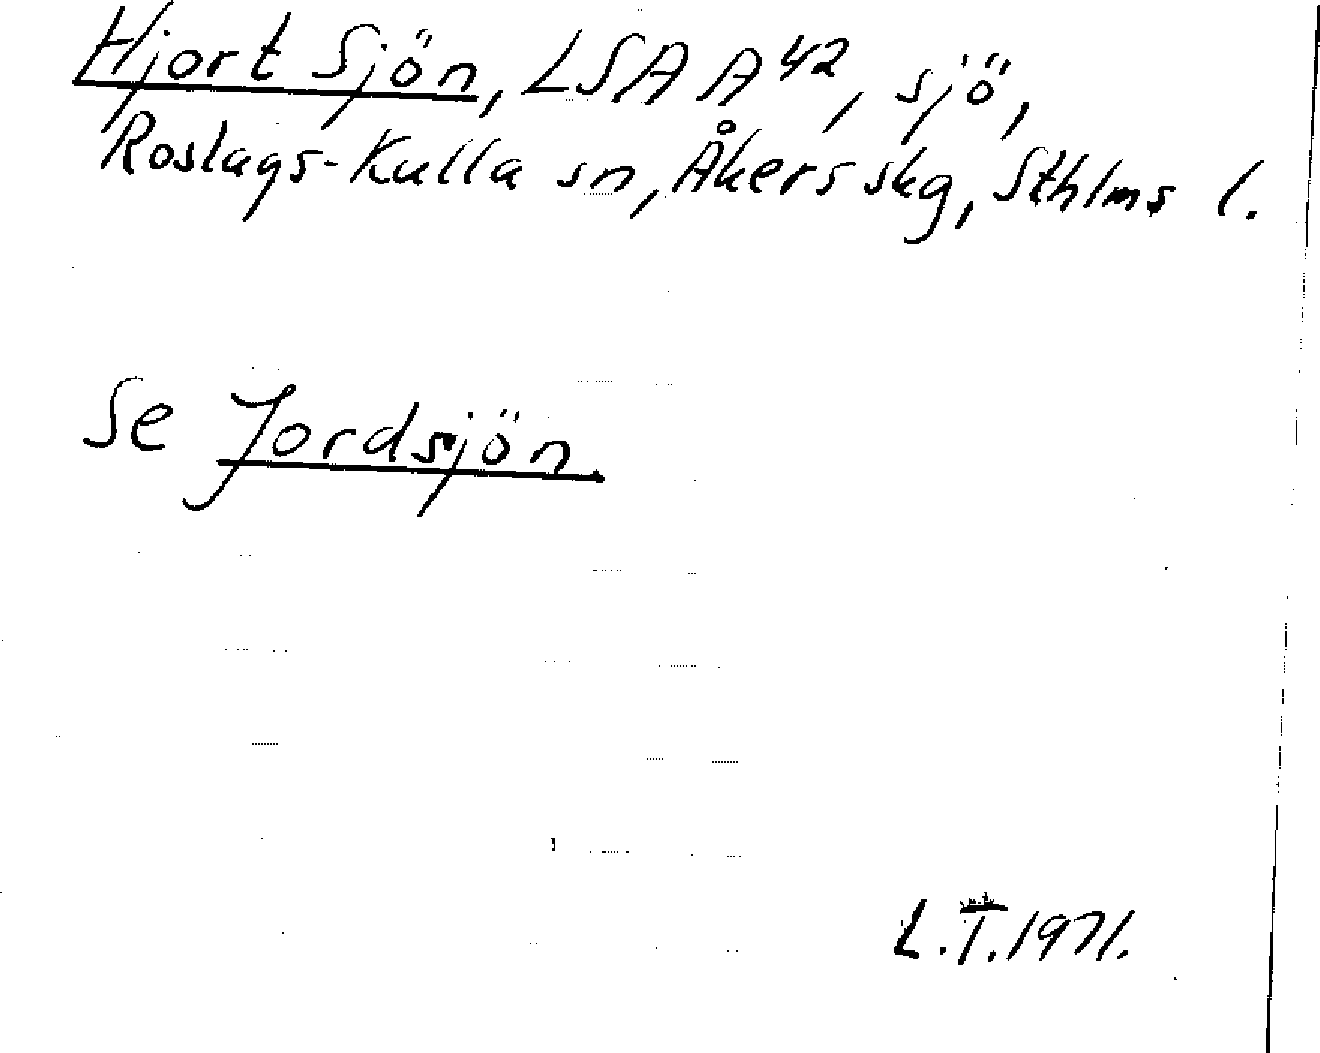 Hjort Sjön, LSA A⁴², sjö,
Roslags-Kulla sn, Åkers skg, Sthlms l.
Se Jordsjön.
L.T. 1971.